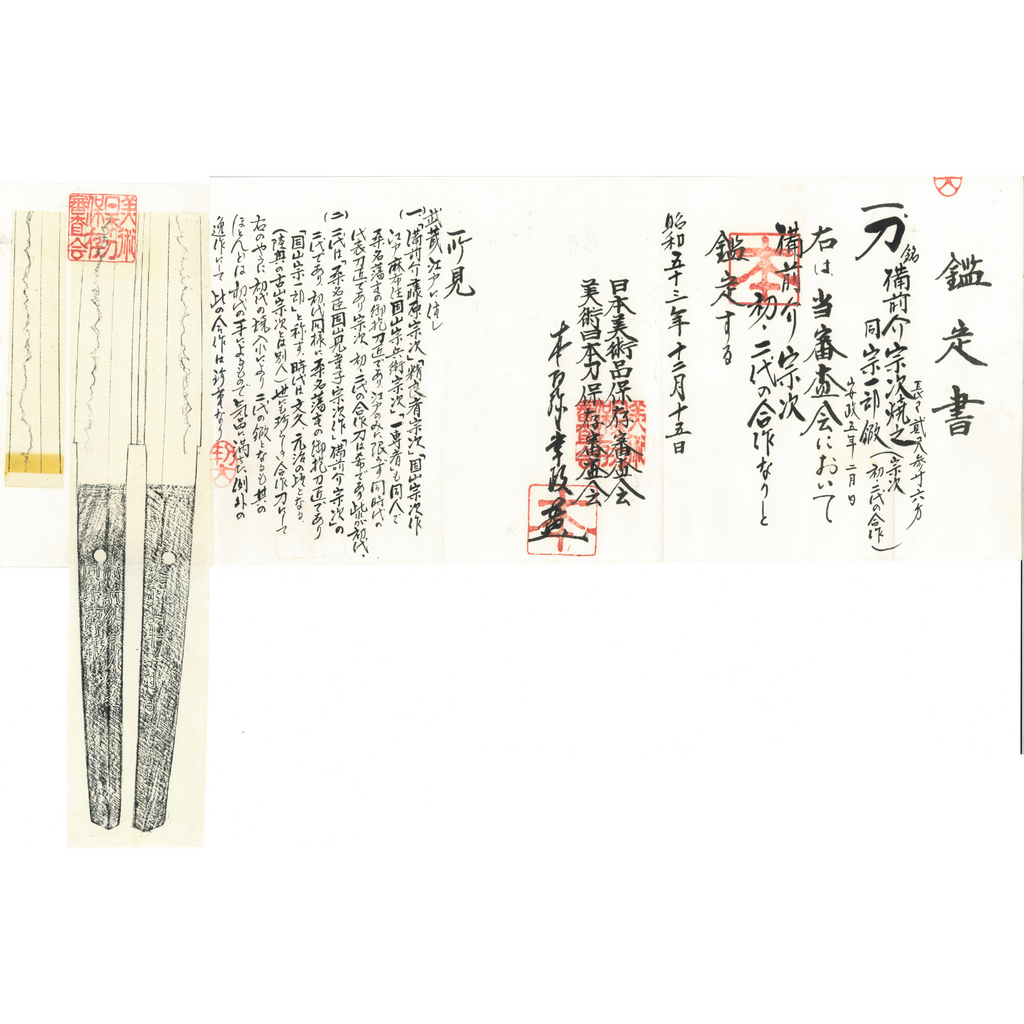 鑑定書
一刀 銘 備前介宗次焼之(宗次
同宗一郎鍛 初二代の合作)
長さ貳尺参寸六分
安政五年二月日
右は当審査会において
備前介宗次
初・二代の合作なりと
鑑定する
昭和五十三年十二月十五日
日本美術品保存審査会
美術日本刀保存審査会
本
所見
武蔵 江戸に住し
(一)「備前介藤原宗次」「固山宗次作
江戸麻布住固山宗兵衛宗次」一専者も同人で
桑名藩主の御抱刀匠であり江戸のみに限らず同時代の
代表刀匠であり宗次 初、二代の合作刀は希であり此が初代、
(二)二代は、「桑名臣固山 宗次作」「備前介宗次」の
二代であり初代同様に桑名藩主の御抱刀匠であり
「固山宗一郎」と称す、時代は文久 元治の頃となる、
(陸奥の古山宗次とは別人)世にも珍らしき合作刀にして
右のやうに 初代の焼入れにより 二代の鍛となるも 其の
ほとんどは 初代の手によるもので上品に満ちた例外の
逸作にして 此の合作は珍重なり
美術
日本刀
保存
審査会